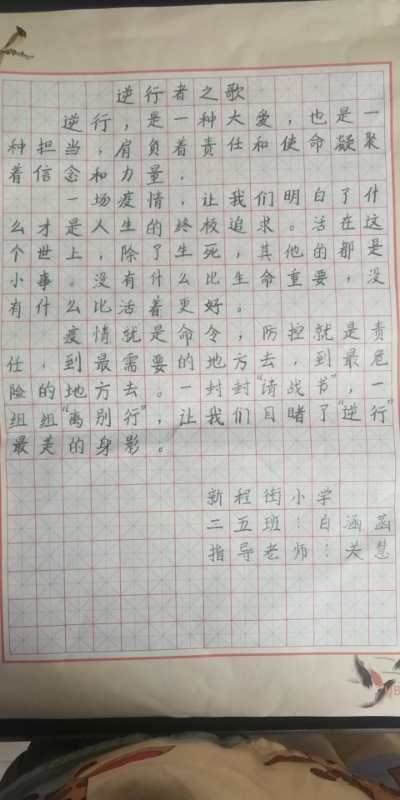 逆行者之歌
逆行，是一种大爱，也是一
种担当，肩负着责任和使命凝聚
着信念和力量．
一场疫情，让我们明白了什
么才是人生的终极追求。活在这
个世上，除了生死，其他的都是
小事。没有什么比生命重要，没
有什么比活着更好。
疫情就是命令，防控就是责
任，到最需要的地方去，到最危
险的地方去。一封封“请战书”，一
组组“离别行”，让我们目睹了“逆行”
最美的身影。
新程街小学
二五班：白涵菡
指导老师：关慧